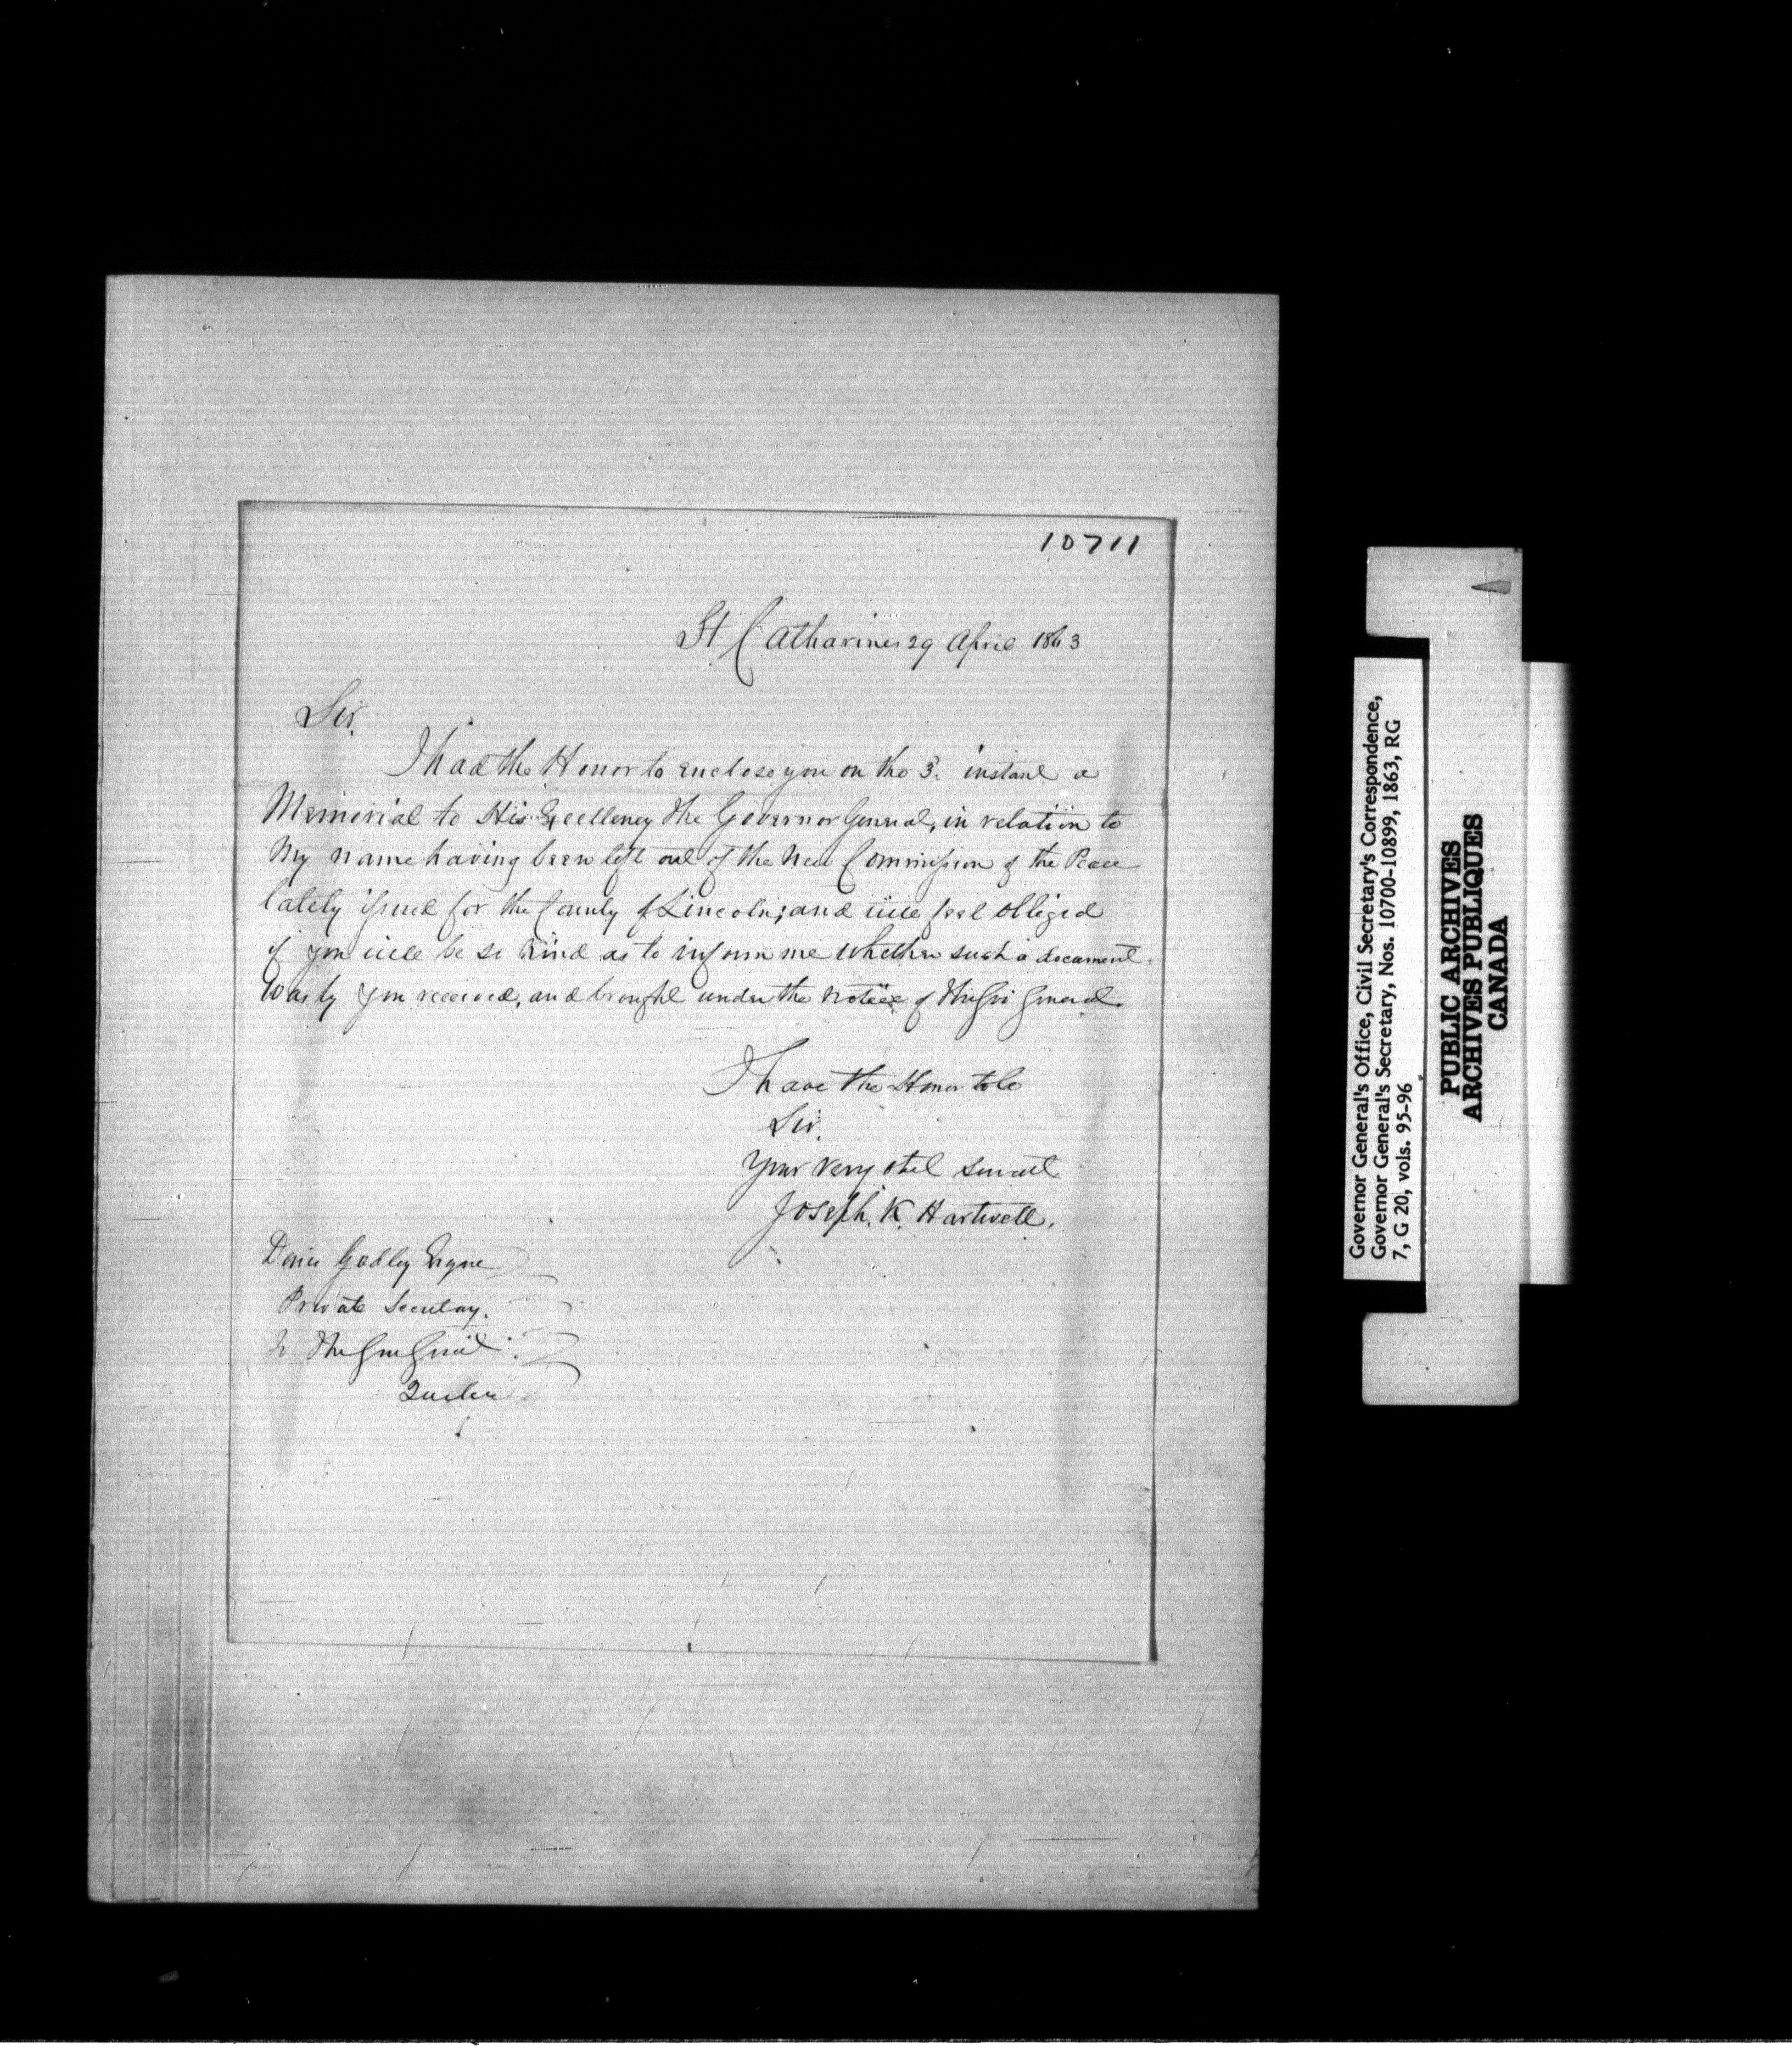 10711
St Catharines 29 April 1863
Sir.
I had the Honor to enclose you on the 3. instant a
Memorial to His Excellency the Governor General, in relation to
My name having been left out of the New Commission of the Peace
lately issued for the County of Lincoln; and will feel obliged
if you will be so kind as to inform me whether such a document
Was by you received, and brought under the notice of The Gov General.
I have the Honor to be
Sir.
Your very obt servant
Joseph. K. Hartwell.
Denis Godley Esqre
Private Secretary.
to The Gov Genl
Quebec
Governor General's Office, Civil Secretary's Correspondence,
Governor General's Secretary, Nos. 10700-10899, 1863, RG
7, G 20, vols. 95-96
PUBLIC ARCHIVES
ARCHIVES PUBLIQUES
CANADA